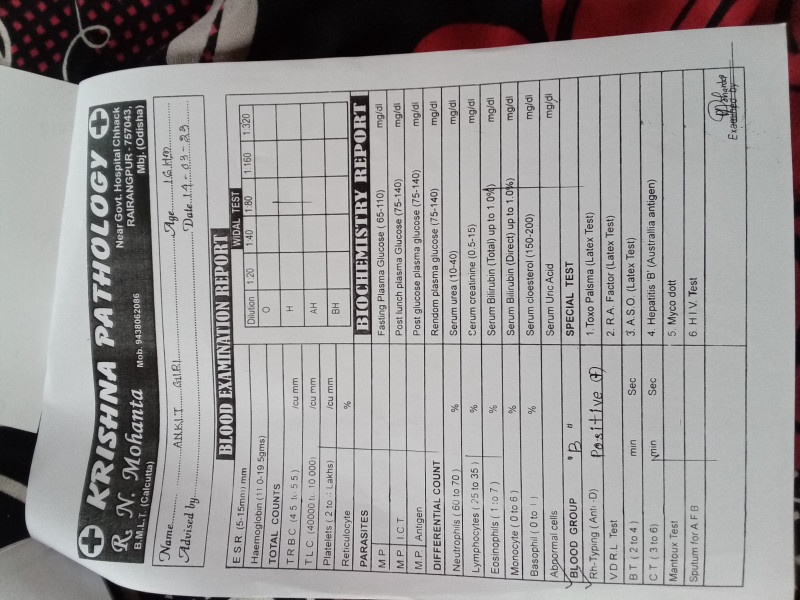 KRISHNA PATHOLOGY
R. N. Mohanta
B.M.L.T. (Calcutta)
Mob. 9438062086
Near Govt. Hospital Chhack
RAIRANGPUR - 757043,
Mbj. (Odisha)
Name ANKIT GIRI Age 16 M
Advised by Date 14-03-23
BLOOD EXAMINATION REPORT
E S R (5-15mm) mm
Haemoglobin (11 0-19 5gms)
TOTAL COUNTS
T R B C (4 5 to 5 5) /cu mm
T L C (40000 to 10 000) /cu mm
Platelets (2 to Lakhs) /cu mm
Reticulocyte %
PARASITES
M P
M P I.C.T
M P Antigen
DIFFERENTIAL COUNT
Neutrophils (60 to 70) %
Lymphocytes (25 to 35) %
Eosinophils (1 to 7) %
Monocyte (0 to 6) %
Basophil (0 to 1) %
Abnormal cells
BLOOD GROUP "B"
Rh-Typing (Anti -D) Positive (+)
V D R L Test
B T (2 to 4) min Sec
C T (3 to 6) min Sec
Mantoux Test
Sputum for A F B
WIDAL TEST
Dilution 1:20 1:40 1:80 1:160 1:320
O
H
AH
BH
BIOCHEMISTRY REPORT
Fasting Plasma Glucose (65-110) mg/dl
Post lunch plasma Glucose (75-140) mg/dl
Post glucose plasma glucose (75-140) mg/dl
Rendom plasma glucose (75-140) mg/dl
Serum urea (10-40) mg/dl
Cerum creatinine (0.5-15) mg/dl
Serum Bilirubin (Total) up to 1.0%) mg/dl
Serum Bilirubin (Direct) up to 1.0%) mg/dl
Serum cloesterol (150-200) mg/dl
Serum Uric Acid mg/dl
SPECIAL TEST
1. Toxo Palsma (Latex Test)
2. R.A. Factor (Latex Test)
3. A.S.O. (Latex Test)
4. Hepatitis 'B' (Australlia antigen)
5. Myco dott
6. H I V. Test
Examined by